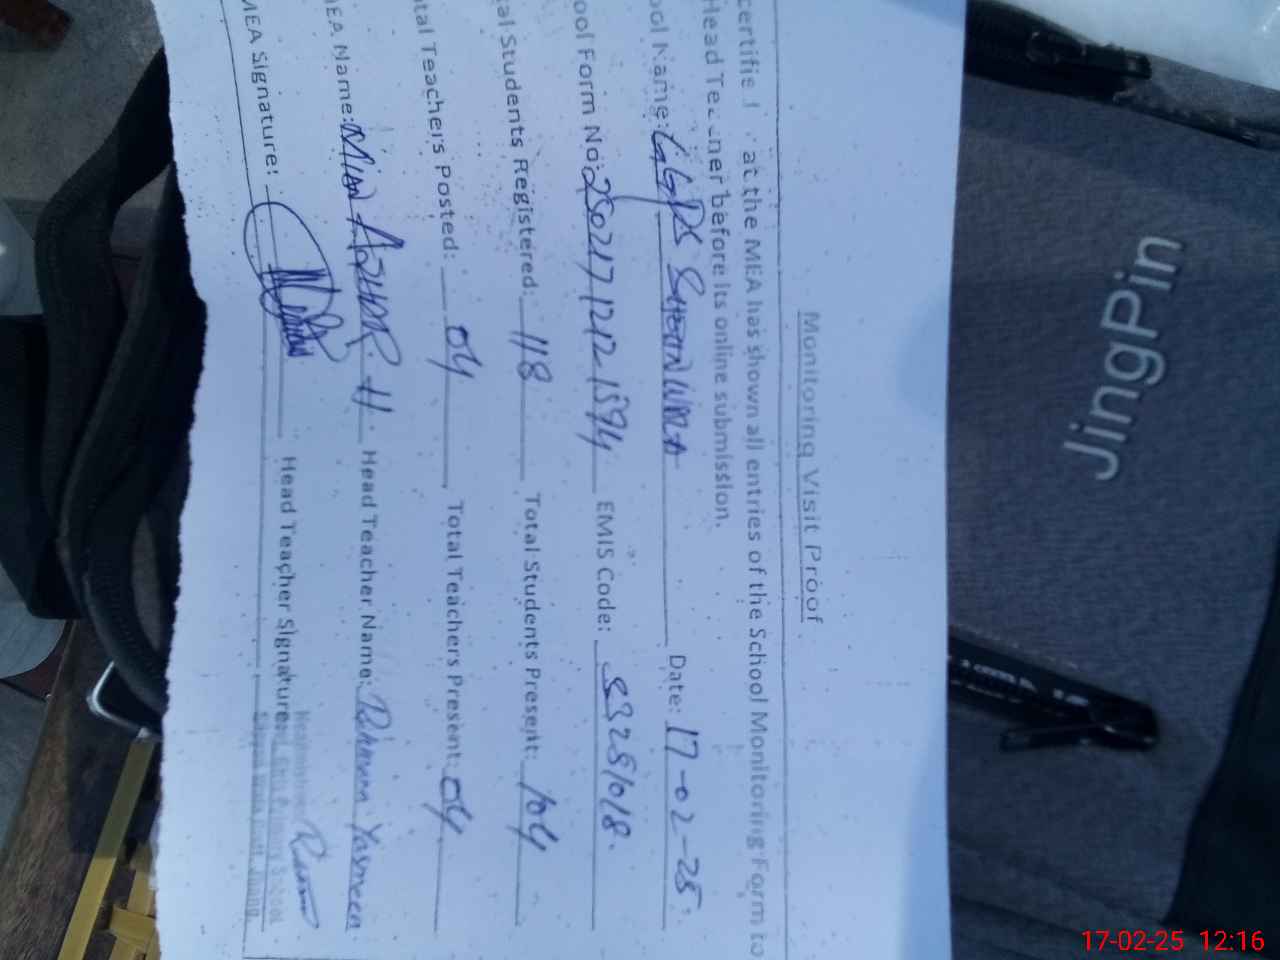 Monitoring Visit Proof
certified that the MEA has shown all entries of the School Monitoring Form to
Head Teacher before its online submission.
ool Name: GGPS Date: 17-02-25.
ool Form No: EMIS Code: 33251018.
tal Students Registered: 118 Total Students Present: 104
tal Teachers Posted: 04 Total Teachers Present: 04
MEA Name: Mian Azhar. H. Head Teacher Name: Yasmeen
MEA Signature: Head Teacher Signature:
Primary School
JingPin
17-02-25 12:16